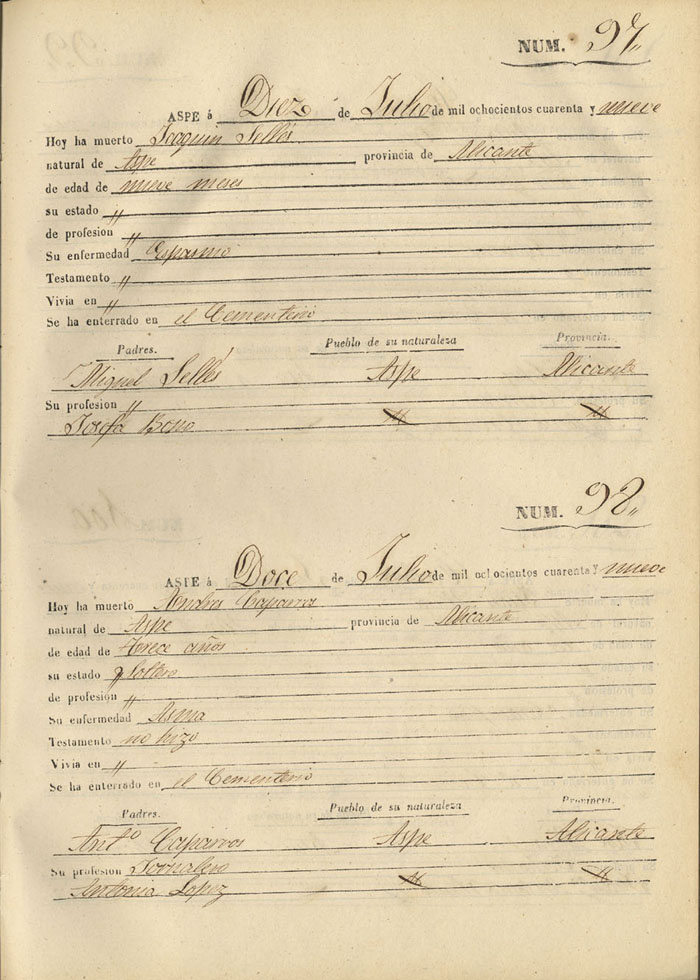 NUM. 97„
ASPE á Diez de Julio de mil ochocientos cuarenta y nueve
Hoy ha muerto Joaquin Sellés
natural de Aspe provincia de Alicante
de edad de nueve meses
su estado „
de profesion „
Su enfermedad Espasmo
Testamento „
Vivia en „
Se ha enterrado en el Cementerio
Padres. Pueblo de su naturaleza Provincia.
Miguel Sellés Aspe Alicante
Su profesion „
Josefa Bono „ „
NUM. 98„
ASPE á Doce de Julio de mil ochocientos cuarenta y nueve
Hoy ha muerto Andres Caparros
natural de Aspe provincia de Alicante
de edad de trece años
su estado Soltero
de profesion „
Su enfermedad Asma
Testamento no hizo
Vivia en „
Se ha enterrado en el Cementerio
Padres. Pueblo de su naturaleza Provincia.
Antº Caparros Aspe Alicante
Su profesion Jornalero
Antonia Lopez „ „